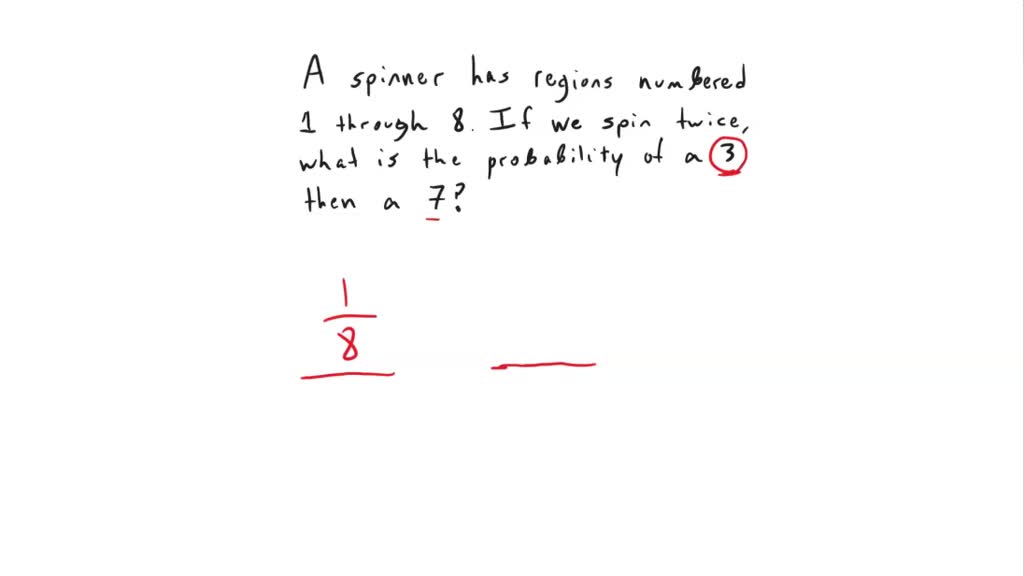 A spinner has regions numbered
1 through 8. If we spin twice,
what is the probability of a 3
then a 7?
1
8